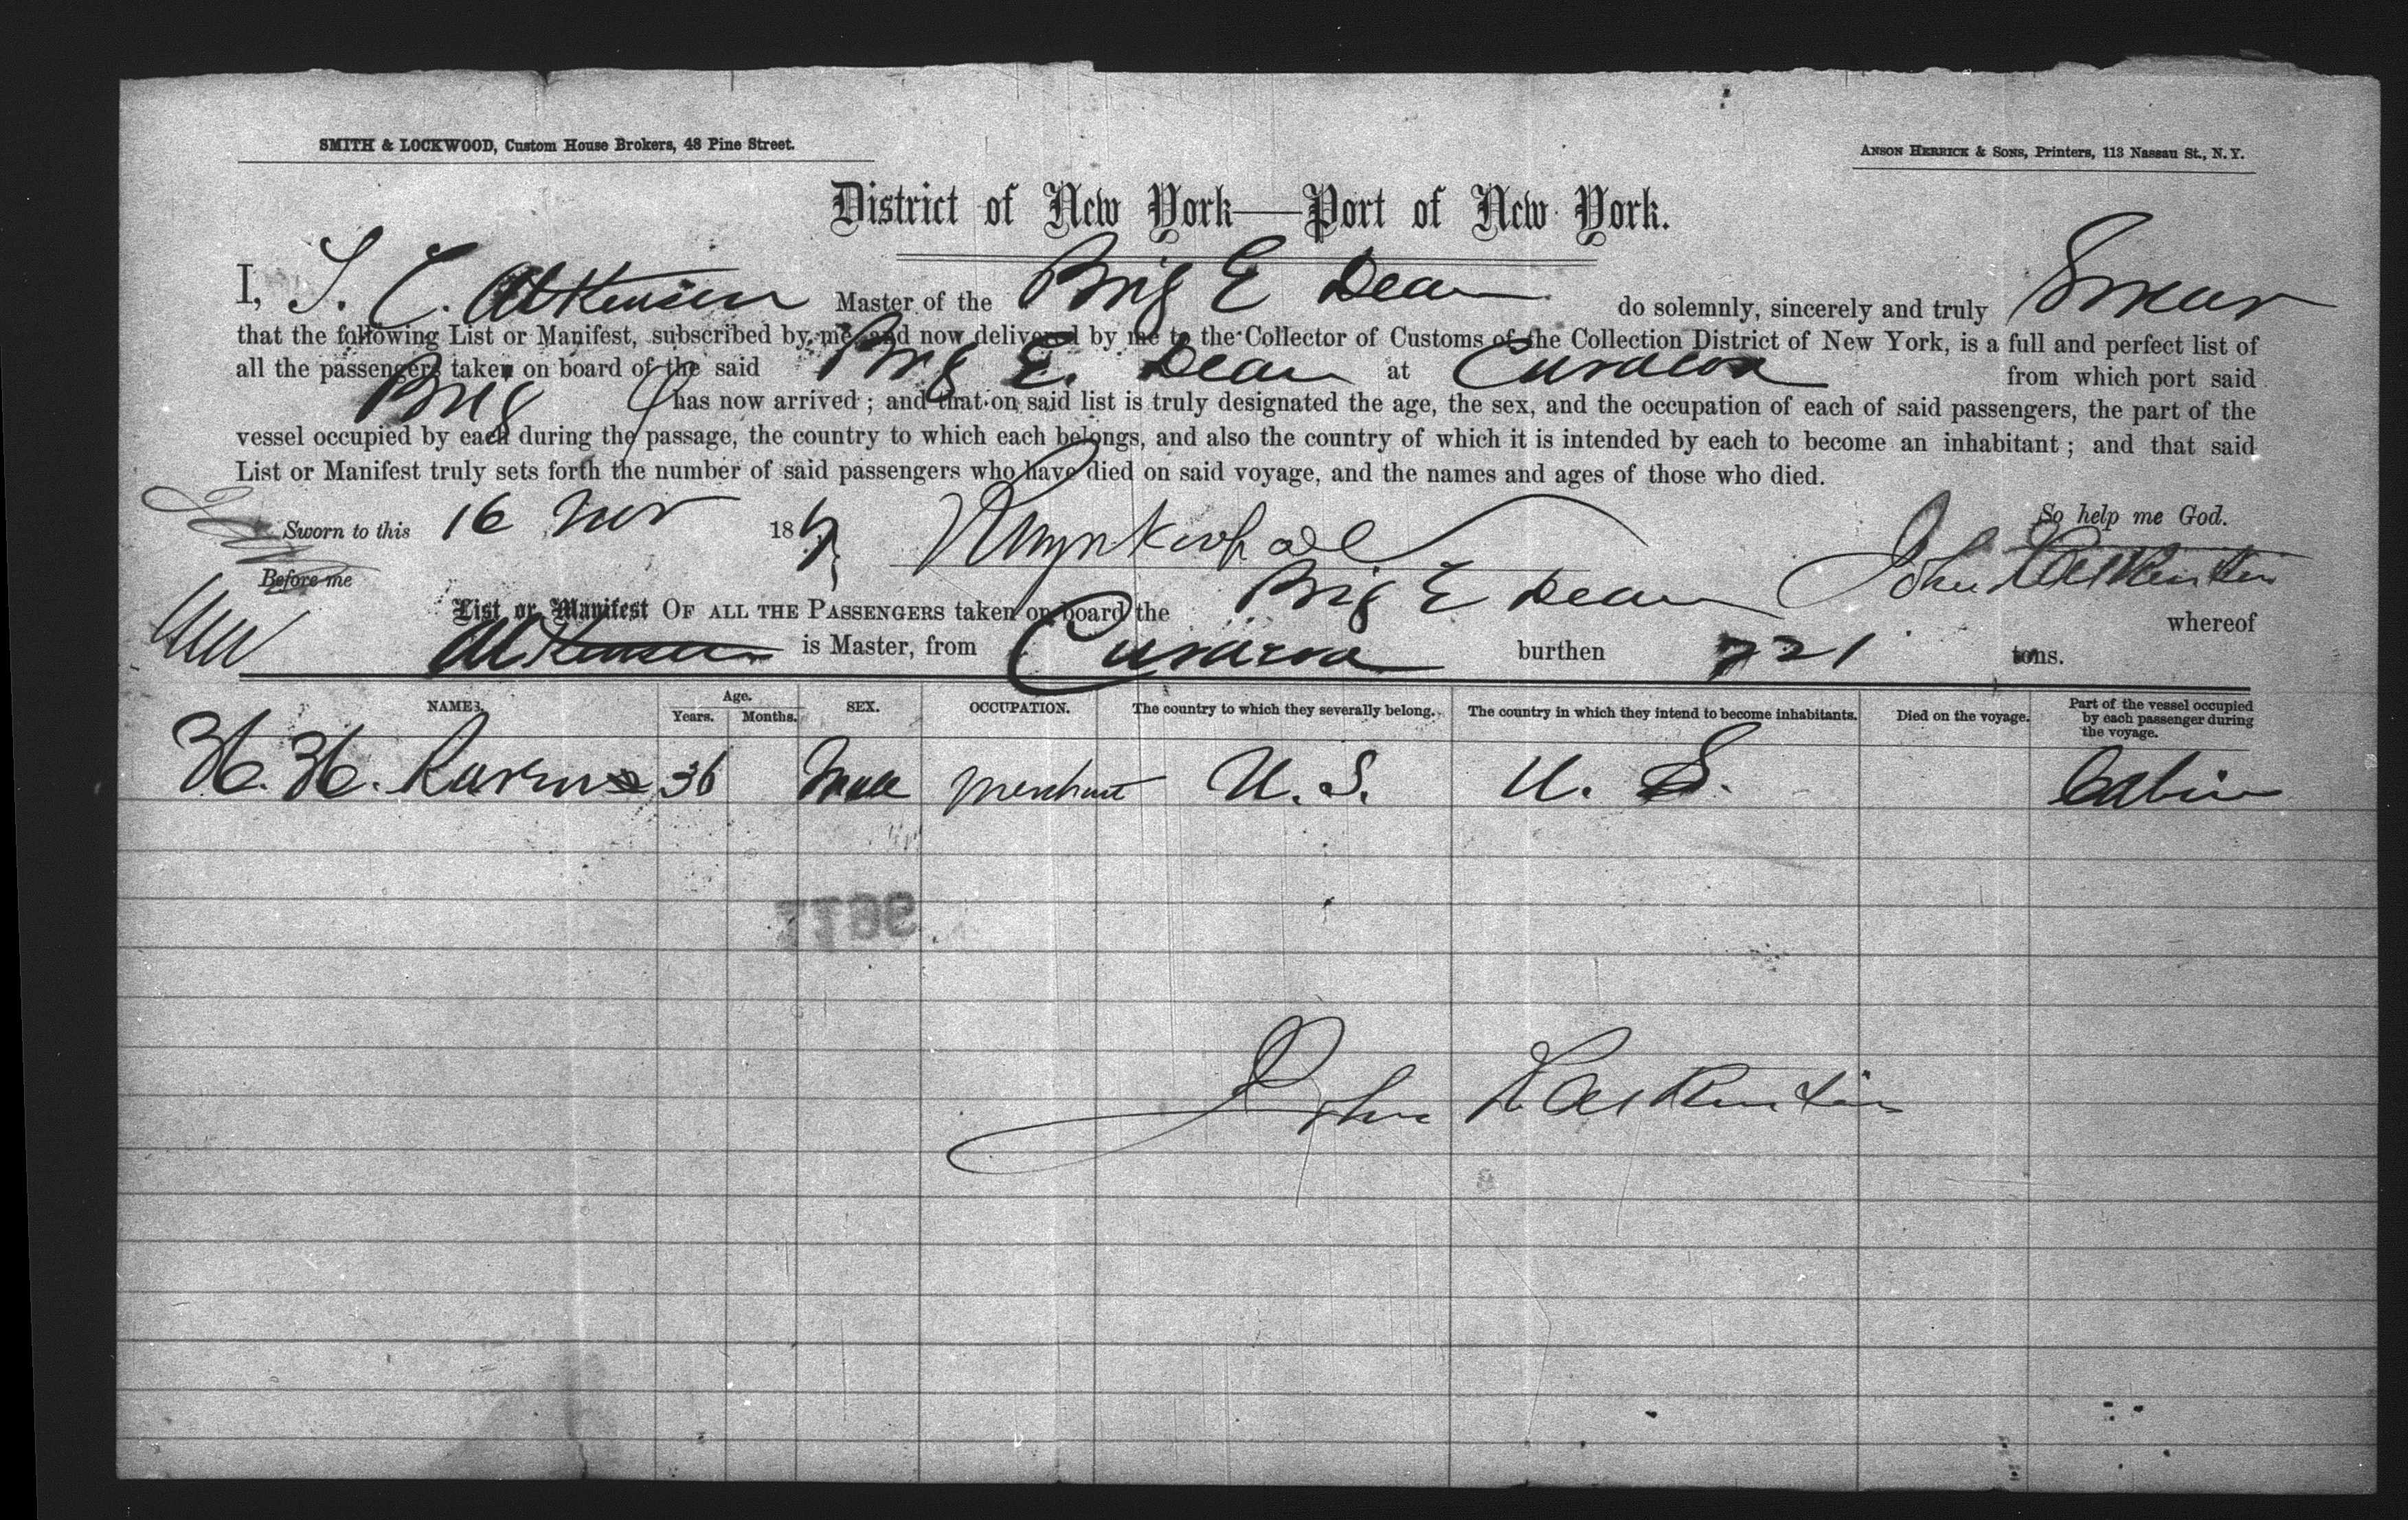 SMITH & LOCKWOOD, Custom House Brokers, 48 Pine Street.
ANSON HERRICK & SONS, Printers, 113 Nassau St., N.Y.
District of New York—Port of New York.
I, Atkinson Master of the Brig E Dean do solemnly, sincerely and truly Swear
that the following List or Manifest, subscribed by me, and now delivered by me to the Collector of Customs of the Collection District of New York, is a full and perfect list of
all the passengers taken on board of the said Brig E. Dean at Curacoa from which port said
Brig has now arrived; and that on said list is truly designated the age, the sex, and the occupation of each of said passengers, the part of the
vessel occupied by each during the passage, the country to which each belongs, and also the country of which it is intended by each to become an inhabitant; and that said
List or Manifest truly sets forth the number of said passengers who have died on said voyage, and the names and ages of those who died.
So help me God.
Sworn to this 16 Nov 18
Before me
John
List or Manifest OF ALL THE PASSENGERS taken on board the Brig E Dean whereof
Atkinson is Master, from Curacoa burthen 221 tons.
NAMES. Age. Years. Months. SEX. OCCUPATION. The country to which they severally belong. The country in which they intend to become inhabitants. Died on the voyage. Part of the vessel occupied by each passenger during the voyage.
H. H. 36 Male Merchant U. S. U. S. Cabin
John